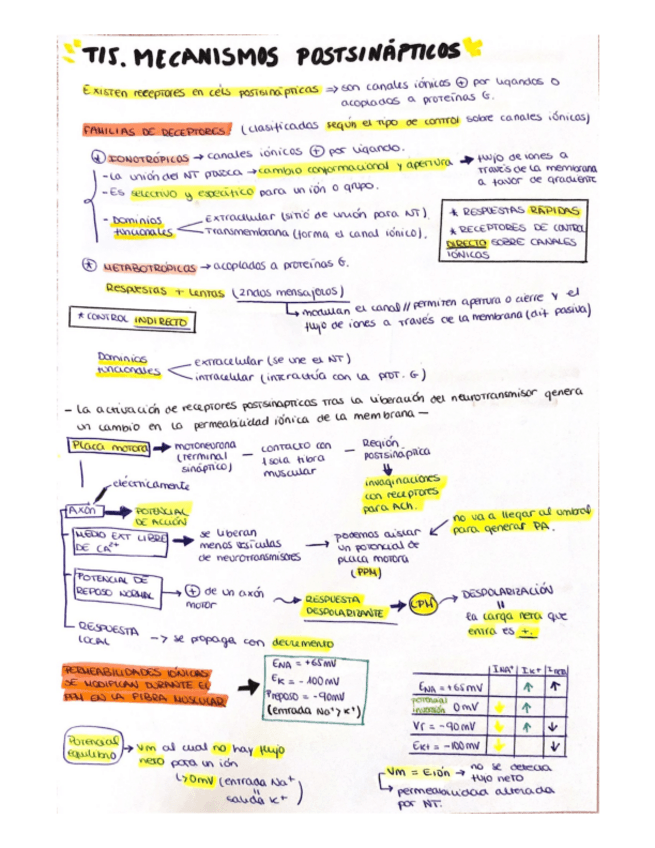 T15. MECANISMOS POSTSINÁPTICOS
Existen receptores en céls postsinápticas => son canales iónicos ⊕ por ligandos o
acoplados a proteínas G.
FAMILIAS DE RECEPTORES: (clasificadas según el tipo de control sobre canales iónicos)
IONOTRÓPICOS → canales iónicos ⊕ por ligando.
- La unión del NT provoca → cambio conformacional y apertura → flujo de iones a
través de la membrana
a favor de gradiente
- Es selectivo y específico para un ión o grupo.
- Dominios
funcionales
Extracelular (sitio de unión para NT)
Transmembrana (forma el canal iónico).
* RESPUESTAS RÁPIDAS
* RECEPTORES DE CONTROL
DIRECTO SOBRE CANALES
IÓNICOS
* METABOTRÓPICOS → acoplados a proteínas G.
Respuestas + lentas (2ndos mensajeros)
↳ modulan el canal // permiten apertura o cierre y el
flujo de iones a través de la membrana (dif pasiva)
* CONTROL INDIRECTO
Dominios
funcionales
extracelular (se une el NT)
intracelular (interactúa con la prot. G)
- La activación de receptores postsinápticos tras la liberación del neurotransmisor genera
un cambio en la permeabilidad iónica de la membrana -
Placa motora → motoneurona
(terminal
sináptico)
— contacto con
1 sola fibra
muscular
— Región
postsináptica
↓
invaginaciones
con receptores
para ACh.
eléctricamente
Axón → POTENCIAL
DE ACCIÓN
MEDIO EXT LIBRE
DE Ca2+
→ se liberan
menos vesículas
de neurotransmisores
→ podemos aislar
un potencial de
placa motora
(PPM)
no va a llegar al umbral
para generar PA.
POTENCIAL DE
REPOSO NORMAL
→ ⊕ de un axón
motor
RESPUESTA
DESPOLARIZANTE
→ CPM → DESPOLARIZACIÓN
||
la carga neta que
entra es +.
RESPUESTA
LOCAL
-> se propaga con decremento
PERMEABILIDADES IÓNICAS
SE MODIFICAN DURANTE EL
PPM EN LA FIBRA MUSCULAR
→ ENa = +65mV
EK = - 100mV
Preposo = -90mV
(entrada Na+ > K+)
INa+ IK+ Ineta
ENa = +65mV ↑ ↑
potencial
inversión 0mV ↓ ↑
Vr = -90mV ↓ ↑ ↓
EK+ = -100mV ↓ ↓
Potencial
equilibrio
→ Vm al cual no hay flujo
neto para un ión
↳ 0mV (entrada Na+
=
salida K+)
Vm = Eión → no se detecta
flujo neto
↳ permeabilidad alterada
por NT.